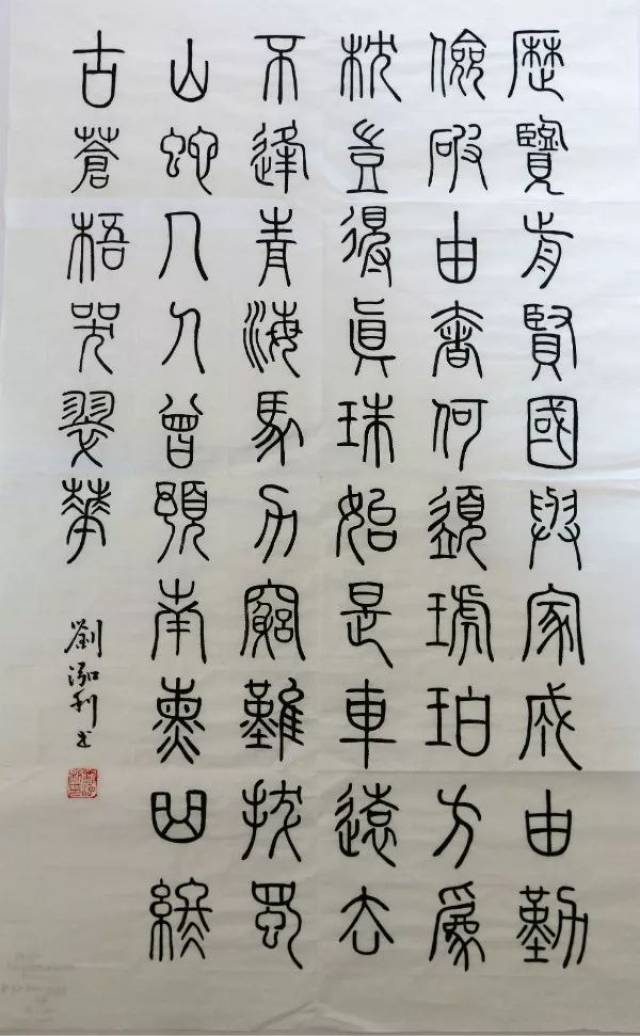 歷覽前賢國與家成由勤
儉破由奢何須琥珀方爲
枕豈得眞珠始是車遠去
不逢青海馬力窮難拔蜀
山蛇几人曾預南熏曲終
古蒼梧哭翠華
劉泓利书